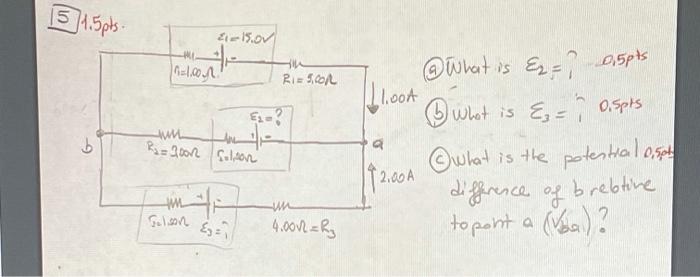 5 1.5pts.
ε1=15.0V
r1=1.00Ω
R1=5.00Ω
1.00A
ε2=?
b
R2=3.00Ω
r=1.00Ω
a
2.00A
r=1.00Ω
ε3=?
4.00Ω=R3
ⓐ What is ε2=? 0,5pts
ⓑ what is ε3=? 0.5pts
ⓒ what is the potential 0,5pts
difference of b relative
to point a (Vba)?